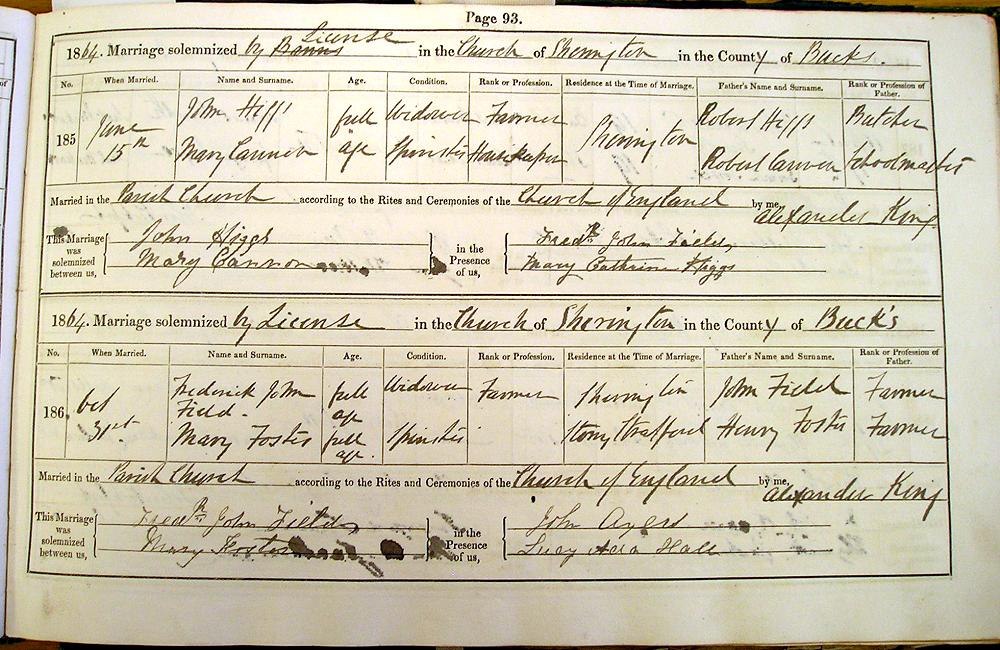 Page 93.
1864. Marriage solemnized by Banns License in the Church of Sherington in the County of Bucks.
No. When Married. Name and Surname. Age. Condition. Rank or Profession. Residence at the Time of Marriage. Father's Name and Surname. Rank or Profession of Father.
185 June 15th John Higgs full age Widower Farmer Sherington Robert Higgs Butcher
Mary Cannon Spinster Housekeeper Robert Cannon Schoolmaster
Married in the Parish Church according to the Rites and Ceremonies of the Church of England by me, Alexander King
This Marriage was solemnized between us, John Higgs in the Presence of us, Fredk John Field,
Mary Cannon Mary Cathrine Higgs
1864. Marriage solemnized by License in the Church of Sherington in the County of Buck's
No. When Married. Name and Surname. Age. Condition. Rank or Profession. Residence at the Time of Marriage. Father's Name and Surname. Rank or Profession of Father.
186 Oct 31st Frederick John Field. full age Widower Farmer Sherington John Field Farmer
Mary Foster full age. Spinster Stony Stratford Henry Foster Farmer
Married in the Parish Church according to the Rites and Ceremonies of the Church of England by me, Alexander King
This Marriage was solemnized between us, Fredk John Field in the Presence of us, John Ayers
Mary Foster Lucy Ada Hall